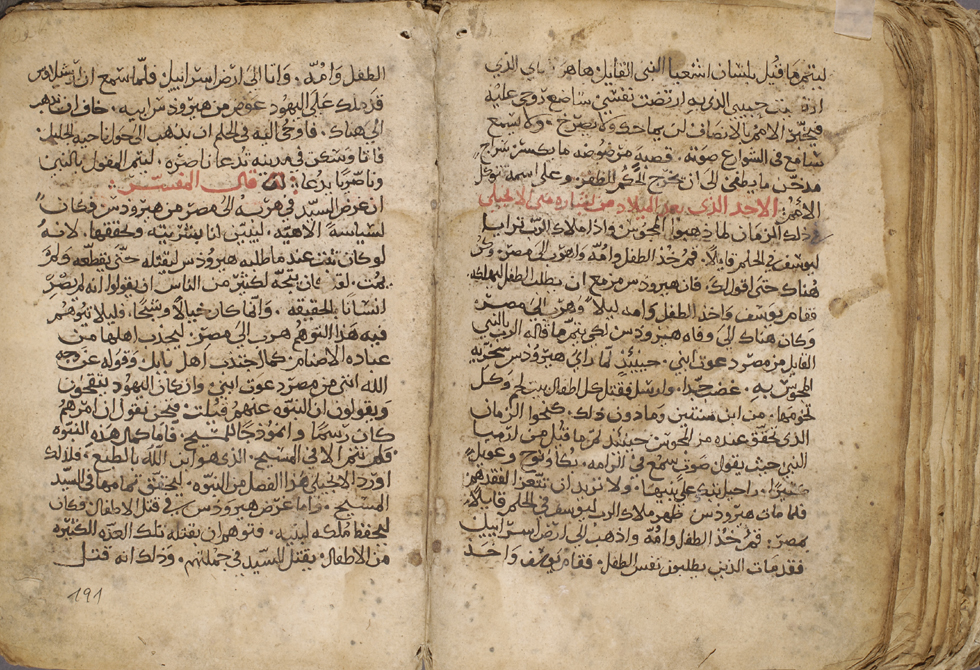 ليتم ما قيل بلسان اشعيا النبى القايل هاهو فتاي الذي
حبيبي الذي به ارتضت نفسي ساضع روحي عليه
فيخبر الامم بالانصاف لن يماحك ولا يصرخ . ولا يسمع
سامع في الشوارع صوته . قصبه مرضوضه ما يكسر سراج
مدخن ما يطفى الى ان يخرج الحكم الظفر . وعلى اسمه تتوكل
الأمم : الاحد الذي بعد الميلاد من بشاره متى الانجيلي
وذلك الزمان لما ذهبوا المجوس واذا ملاك الرب ترايا
ليوسف في الحلم قايلاً . قمر خذ الطفل وامه واهرب الى مصر . وكن
هناك حتى اقول لك . فان هيرودس مزمع ان يطلب الطفل ليهلكه
فقام يوسف واخذ الطفل وامه ليلاً وهرب الى مصر
وكان هناك الى وفاه هيرودس لكي يتم ما قاله الرب بالنبي
القايل من مصر دعوت ابني . حينيذٍ لما راي هيرودس سخريه
المجوس به . غضب جداً . وارسل فقتل كل اطفال بيت لحم وكل
تخومها . من ابن سنتين وما دون ذلك . كنحو الزمان
الذي تحقق عنده من المجوس حينيذ تم ما قيل من ارميا
النبي حيث يقول صوت سمع في الرامه . بكا ونوح وعويل
كثيراً . راحيل تبكي على بنيها . ولا تريد ان تتعزا لفقدهم
فلما مات هيرودس ظهر ملاك الرب ليوسف في الحلم قايلاً
بمصر : قم خذ الطفل وامه واذهب الى ارض اسراييل
فقد مات الذين يطلبون نفس الطفل . فقام يوسف واخذ
الطفل وامه . واتا الى ارض اسراييل فلما سمع ان ارشلاوس
قد ملك على اليهود عوض من هيرودس ابيه . خاف ان يذهب
الى هناك . فاوحى اليه في الحلم ان يذهب الى حول ناحيه الجليل
فاتا وسكن في مدينه تدعا ناصره . ليتم المقول بالنبي
ناصريا يدعا : قال المفسر
ان غرض السيد في هربه الى مصر من هيرودس فكان
لسياسه الاهيه . ليتبين انا بشريته ويحققها . لانه
لو كان ثبت عندما طلبه هيرودس ليقتله حتى يقطعه ولم
يمت . لقد كان يتجه لكثير من الناس ان يقولوا انه لم يصر
انسانا بالحقيقه . وانما كان خيالاً وشبحاً . وليلا يتوهم
فيه هذا التوهم هرب الى مصر . ليجذب اهلها من
عباده الاصنام . كما اجتذب اهل بابل . وقوله عن وجه
الله انني من مصر دعوت ابني . وان كان اليهود يتقحون
ويقولون ان النبوه عنهم قيلت فنحن نقول ان امرهم
كان رسما وانموذجا للمسيح . فاما كمال هذه النبوه
فلم تتم الا في المسيح . الذي هو ابن الله بالطبع . فلذلك
اورد الانجيلي هذا الفصل من النبوه . ليحقق تمامها في السيد
المسيح . واما غرض هيرودس في قتل الاطفال فكان
ليحفظ ملكه لبنيه . فتوهم ان بقتله تلك العده الكثيره
من الاطفال . يقتل السيد في جملتهم . وذلك انه قتل
191